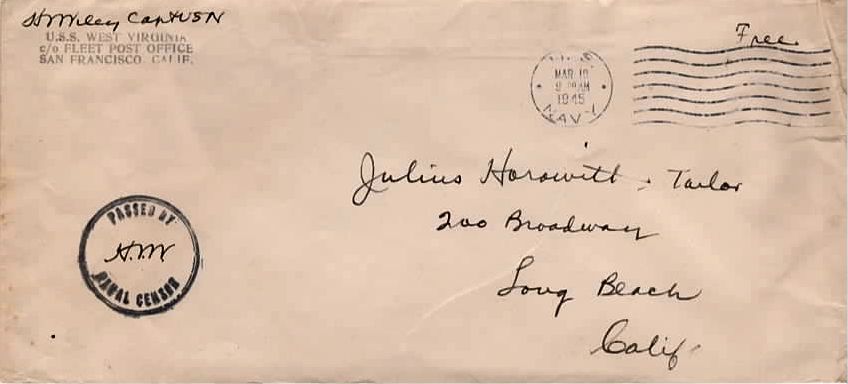 HVWiley Capt USN
U.S.S. WEST VIRGINIA
c/o FLEET POST OFFICE
SAN FRANCISCO, CALIF.
Free
U.S.
MAR 19
9 AM
1945
NAVY
Julius Horowitt, Tailor
200 Broadway
Long Beach
Calif.
PASSED BY
H.V.W
NAVAL CENSOR